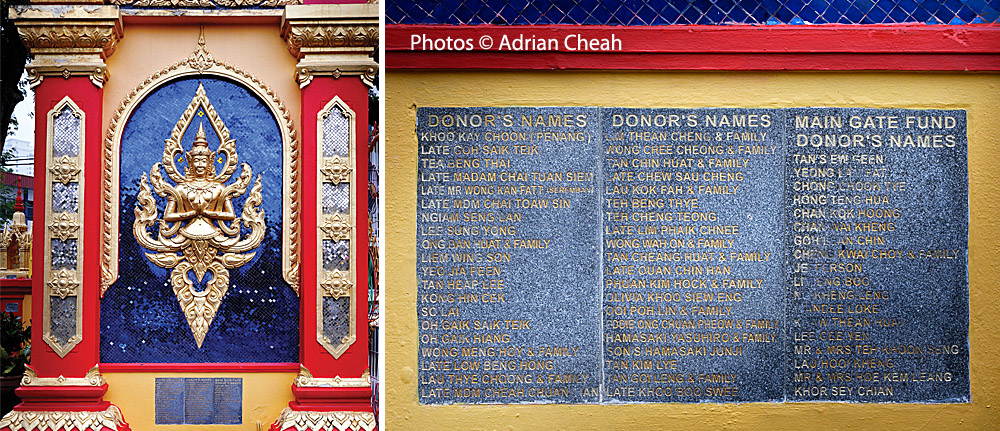 Photos © Adrian Cheah
DONOR'S NAMES
KHOO KAY CHOON (PENANG)
LATE GOH SAIK TEIK
TEA BENG THAI
LATE MADAM CHAI TUAN SIEM
LATE MR WONG KAN FATT (SEREMBAN)
LATE MDM CHAI TOAW SIN
NGIAM SENG LAN
LEE SUNG YONG
ONG BAN HUAT & FAMILY
LIEM WING SON
YEO JIA FEEN
TAN HEAP LEE
KONG HIN CEK
SO LAI
OH GAIK SAIK TEIK
OH GAIK HIANG
WONG MENG HOY & FAMILY
LATE LOW BENG HONG
LAU THYE CHOONG & FAMILY
LATE MDM CHEAH CHUAN
DONOR'S NAMES
LIM THEAN CHENG & FAMILY
WONG CHEE CHEONG & FAMILY
TAN CHIN HUAT & FAMILY
LATE CHEW SAU CHENG
LAU KOK FAH & FAMILY
TEH BENG THYE
TEH CHENG TEONG
LATE LIM PHAIK CHNEE
WONG WAH ON & FAMILY
TAN CHEANG HUAT & FAMILY
LATE QUAN CHIN HAN
PHUAN KIM HOCK & FAMILY
OLIVIA KHOO SIEW ENG
OOI POH LIN & FAMILY
EDDIE ONG CHUAN PHEOW & FAMILY
HAMASAKI YASUHIRO & FAMILY
SON'S HAMASAKI JUNJI
TAN KIM LYE
TAN GOI LENG & FAMILY
LATE KHOO BOO SWEE
MAIN GATE FUND
DONOR'S NAMES
TAN'S EW SEEN
YEONG
CHONG CHOOK
HONG TENG HUA
CHAN KOK HOONG
CHAN WAI KHENG
GOH CHIN
CHENG KWAI CHOY & FAMILY
LI TENG BOO
KHENG LENG
LOKE
THEAN
LEE GEE YEN
MR & MRS TEH SENG
LAU HOOI KHENG
MR & MRS HOE KEM LEANG
KHOR SEY CHIAN